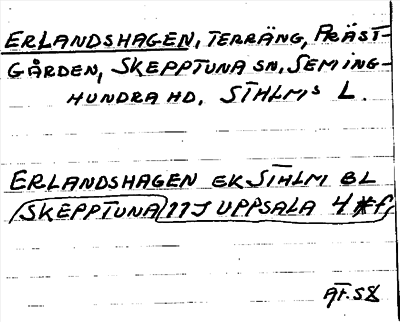 ERLANDSHAGEN, TERRÄNG, PRÄST-
GÅRDEN, SKEPPTUNA SN, SEMING-
HUNDRA HD, STHLMS L.
ERLANDSHAGEN EK STHLM BL
SKEPPTUNA 11J UPPSALA 4 * f,
ÄT. 58